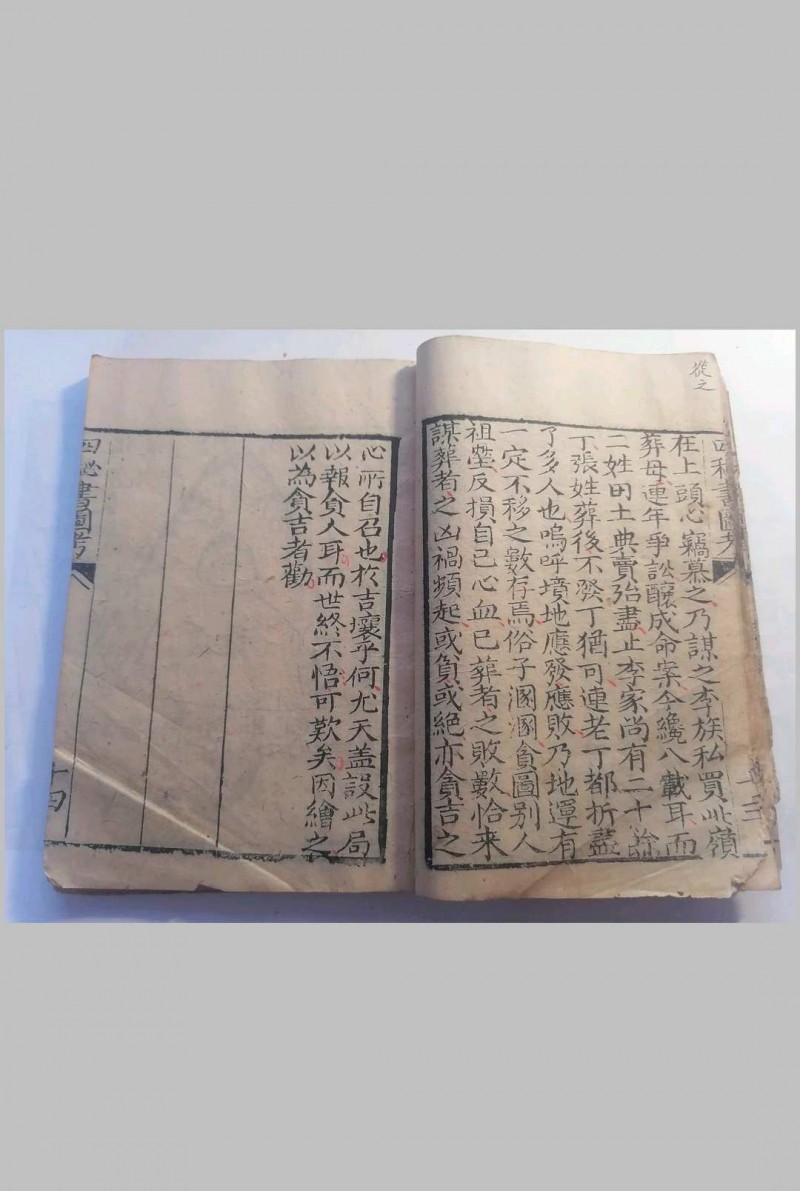 從之
四秘書圖考
在上頭心竊慕之乃謀之李族私買此嶺
葬母連年爭訟釀成命案今纔八載耳而
二姓田土典賣殆盡止李家尚有二十餘
丁張姓葬後不發丁猶可連老丁都折盡
了多人也嗚呼墳地應發應敗乃地運有
一定不移之數存焉俗子溷溷貪圖別人
祖塋反損自己心血已葬者之敗數恰来
謀葬者之凶禍頻起或負或絕亦貪吉之
十三
心所自召也於吉壤乎何尤天盖設此局
以報貪人耳而世終不悟可歎矣因繪之
以為貪吉者勸
四祕書圖考
十四